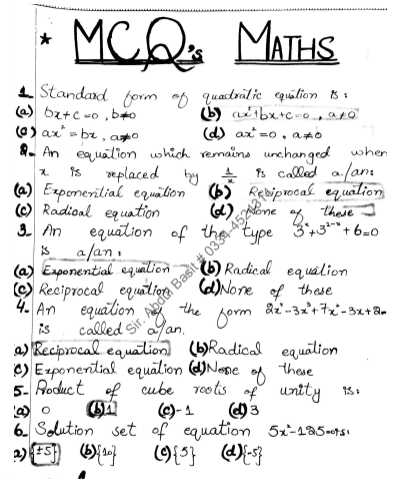 * MCQ's MATHS
1_ Standard form of quadratic equation is :
(a) bx+c=0, b≠0 (b) ax²+bx+c=0, a≠0
(c) ax²=bx, a≠0 (d) ax²=0, a≠0
2_ An equation which remains unchanged when
x is replaced by 1/x is called a/an:
(a) Exponential equation (b) Reciprocal equation
(c) Radical equation (d) None of these
3_ An equation of the type 3ˣ+3²⁻ˣ+6=0
is a/an:
(a) Exponential equation (b) Radical equation
(c) Reciprocal equation (d) None of these
4_ An equation of the form 2x⁴-3x³+7x²-3x+2=
is called a/an.
a) Reciprocal equation (b) Radical equation
c) Exponential equation (d) None of these
5- Product of cube roots of unity is:
(a) 0 (b) 1 (c) -1 (d) 3
6_ Solution set of equation 5x²-125=0 is:
a) {±5} (b) {10} (c) {5} (d) {-5}
Sir. Abdul Basit #